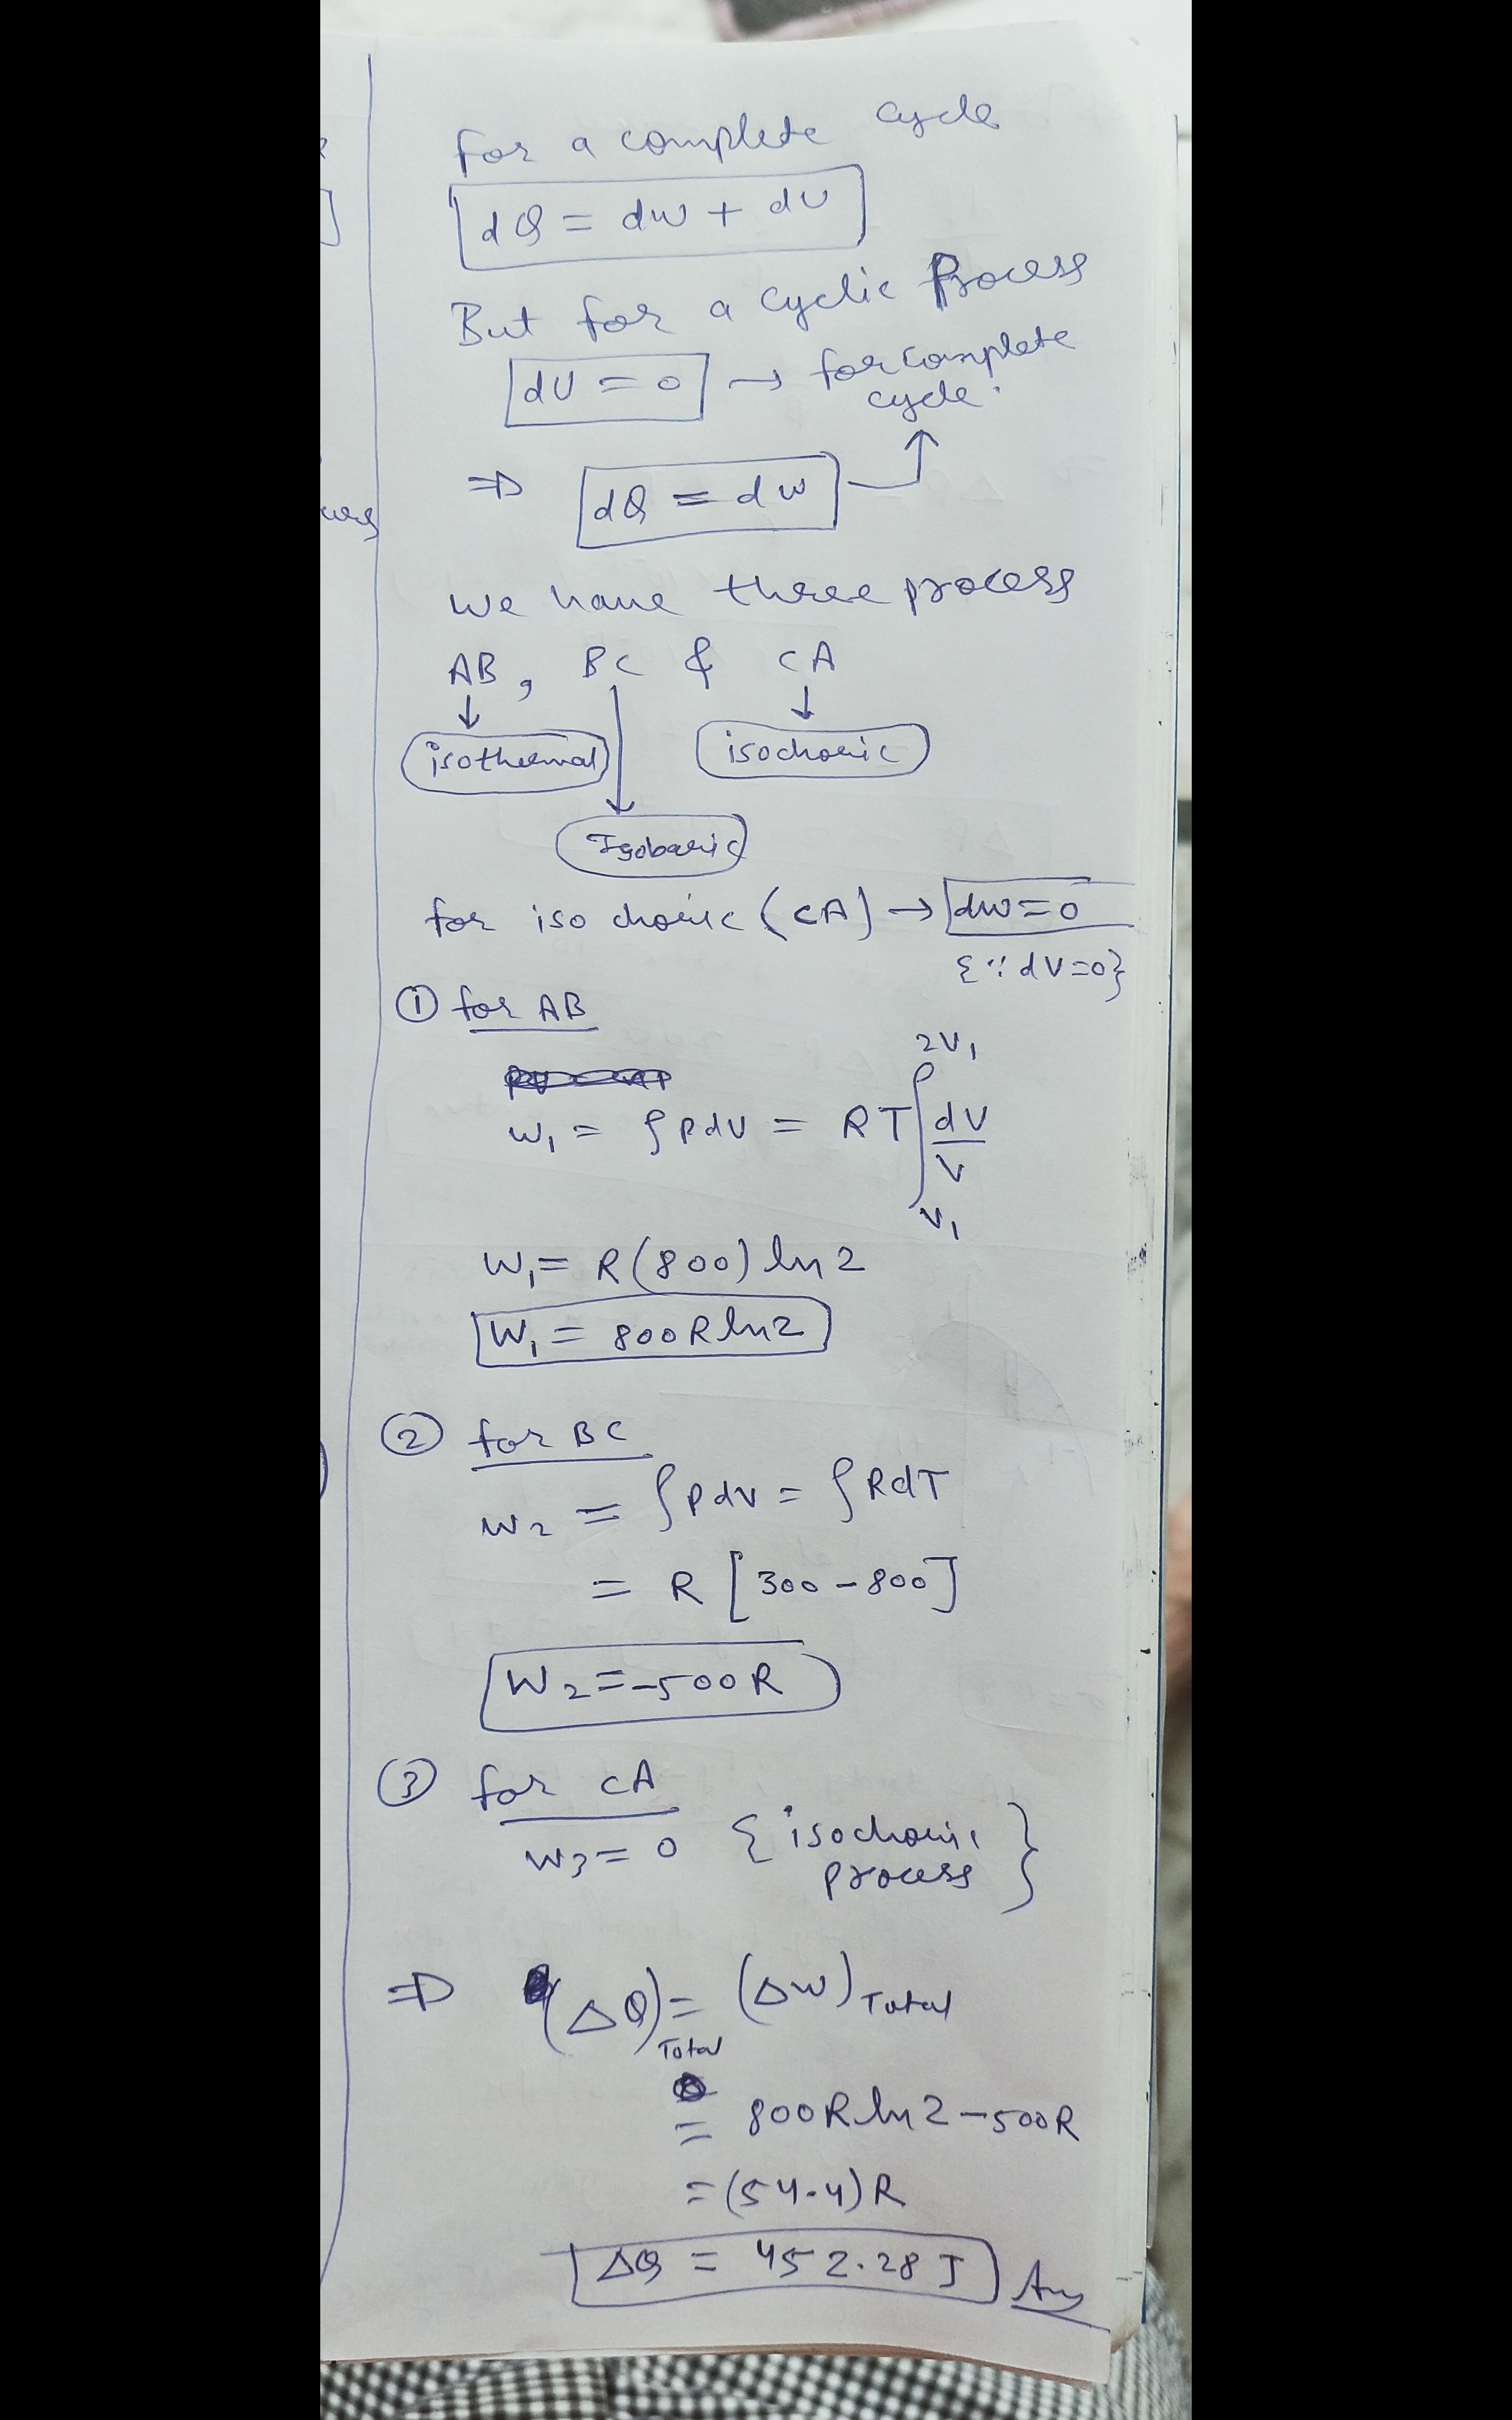 for a complete cycle
dQ = dw + dU
But for a cyclic Process
dU = 0 → for complete
cycle.
⇒ dQ = dw
we have three process
AB, BC & CA
isothermal isochoric
Isobaric
for isochoric (CA) → dw=0
{∵ dV=0}
① for AB
w₁ = ∫PdV = RT ∫_{V₁}^{2V₁} dV/V
W₁= R(800) ln2
W₁ = 800Rln2
② for BC
w₂ = ∫Pdv = ∫RdT
= R [300-800]
W₂=-500R
③ for CA
w₃= 0 {isochoric
process}
⇒ (ΔQ)Total = (ΔW)Total
= 800Rln2-500R
=(54.4)R
ΔQ = 452.28 J Ans